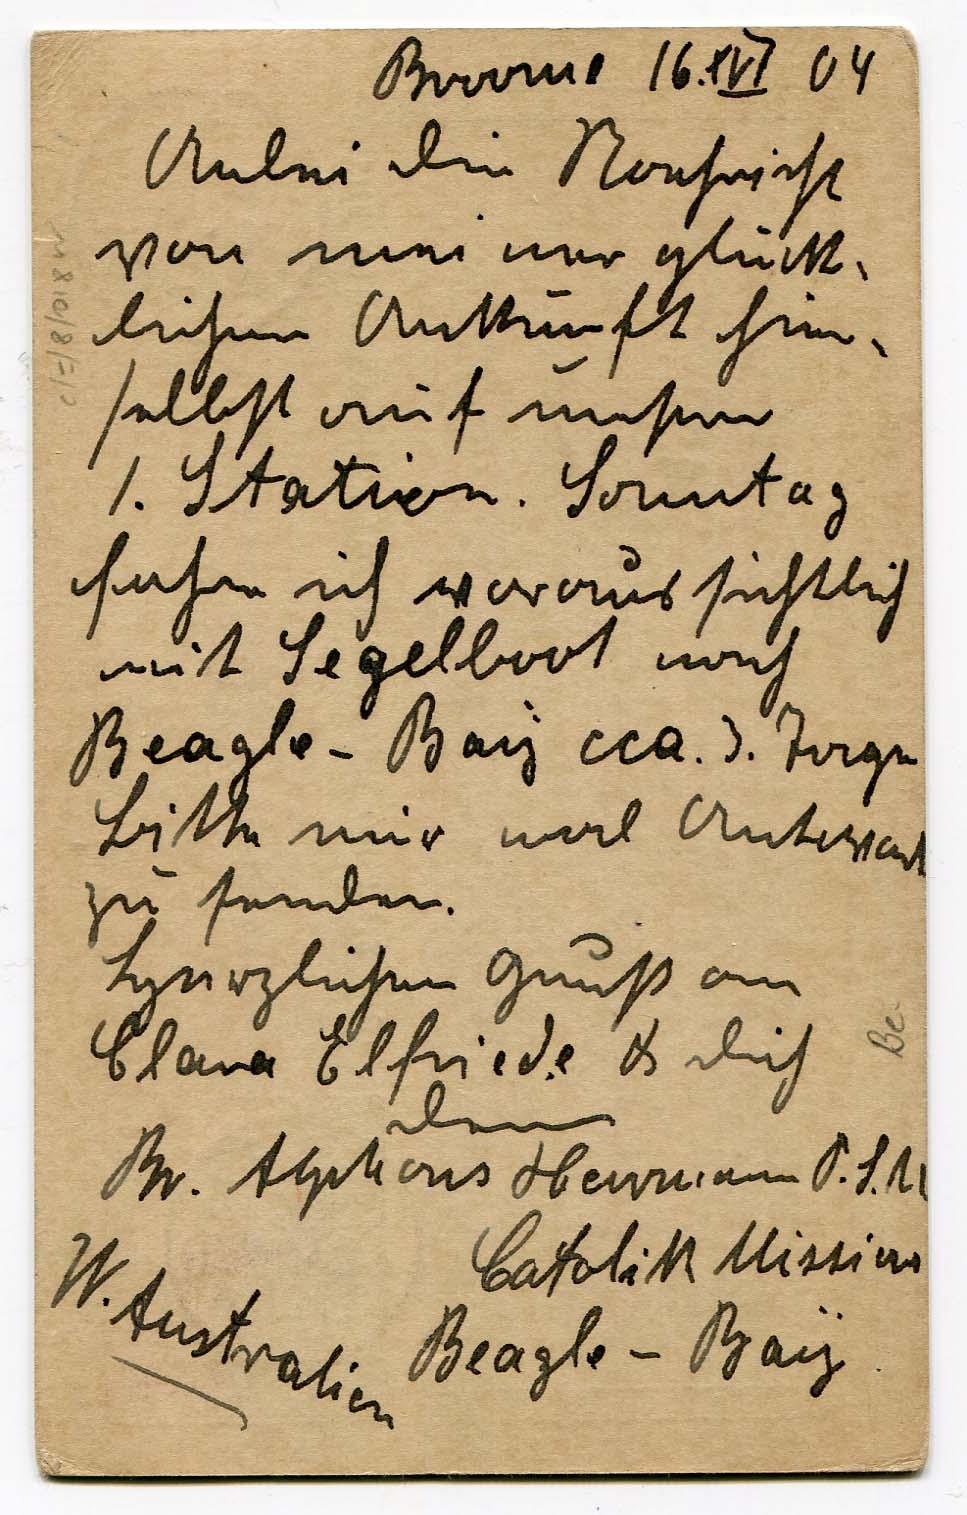 Broome 16.VI 04
Anbei die Nachricht
von meiner glück-
lichen Ankunft hier-
selbst auf unserer
1. Station. Sonntag
fahre ich voraussichtlich
mit Segelboot nach
Beagle-Baÿ cca. 3. Tage
bitte mir Antwort
zu senden.
Herzlichen Gruß an
Clara Elfriede & Dich
Dein
Br. Alphons Herrmann P.S.M
Catolik Mission
W. Australien
Beagle-Baÿ
Be-